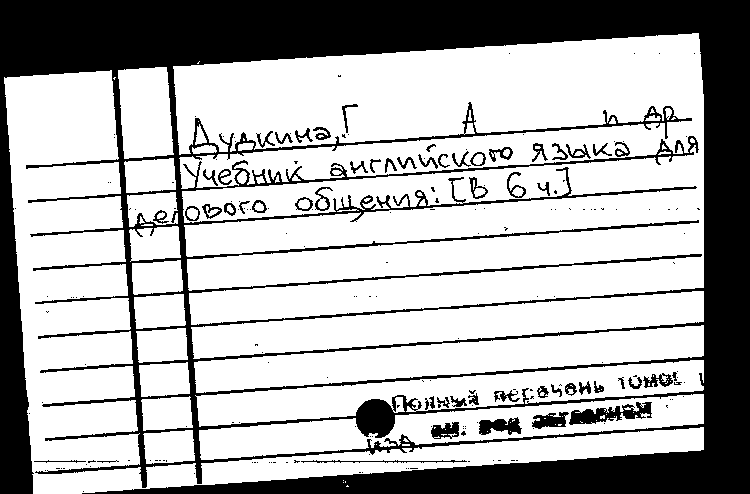 Дудкина, Г А и др
Учебник английского языка для
делового общения: [В 6 ч.]
Полный перечень томов
см. под заглавием